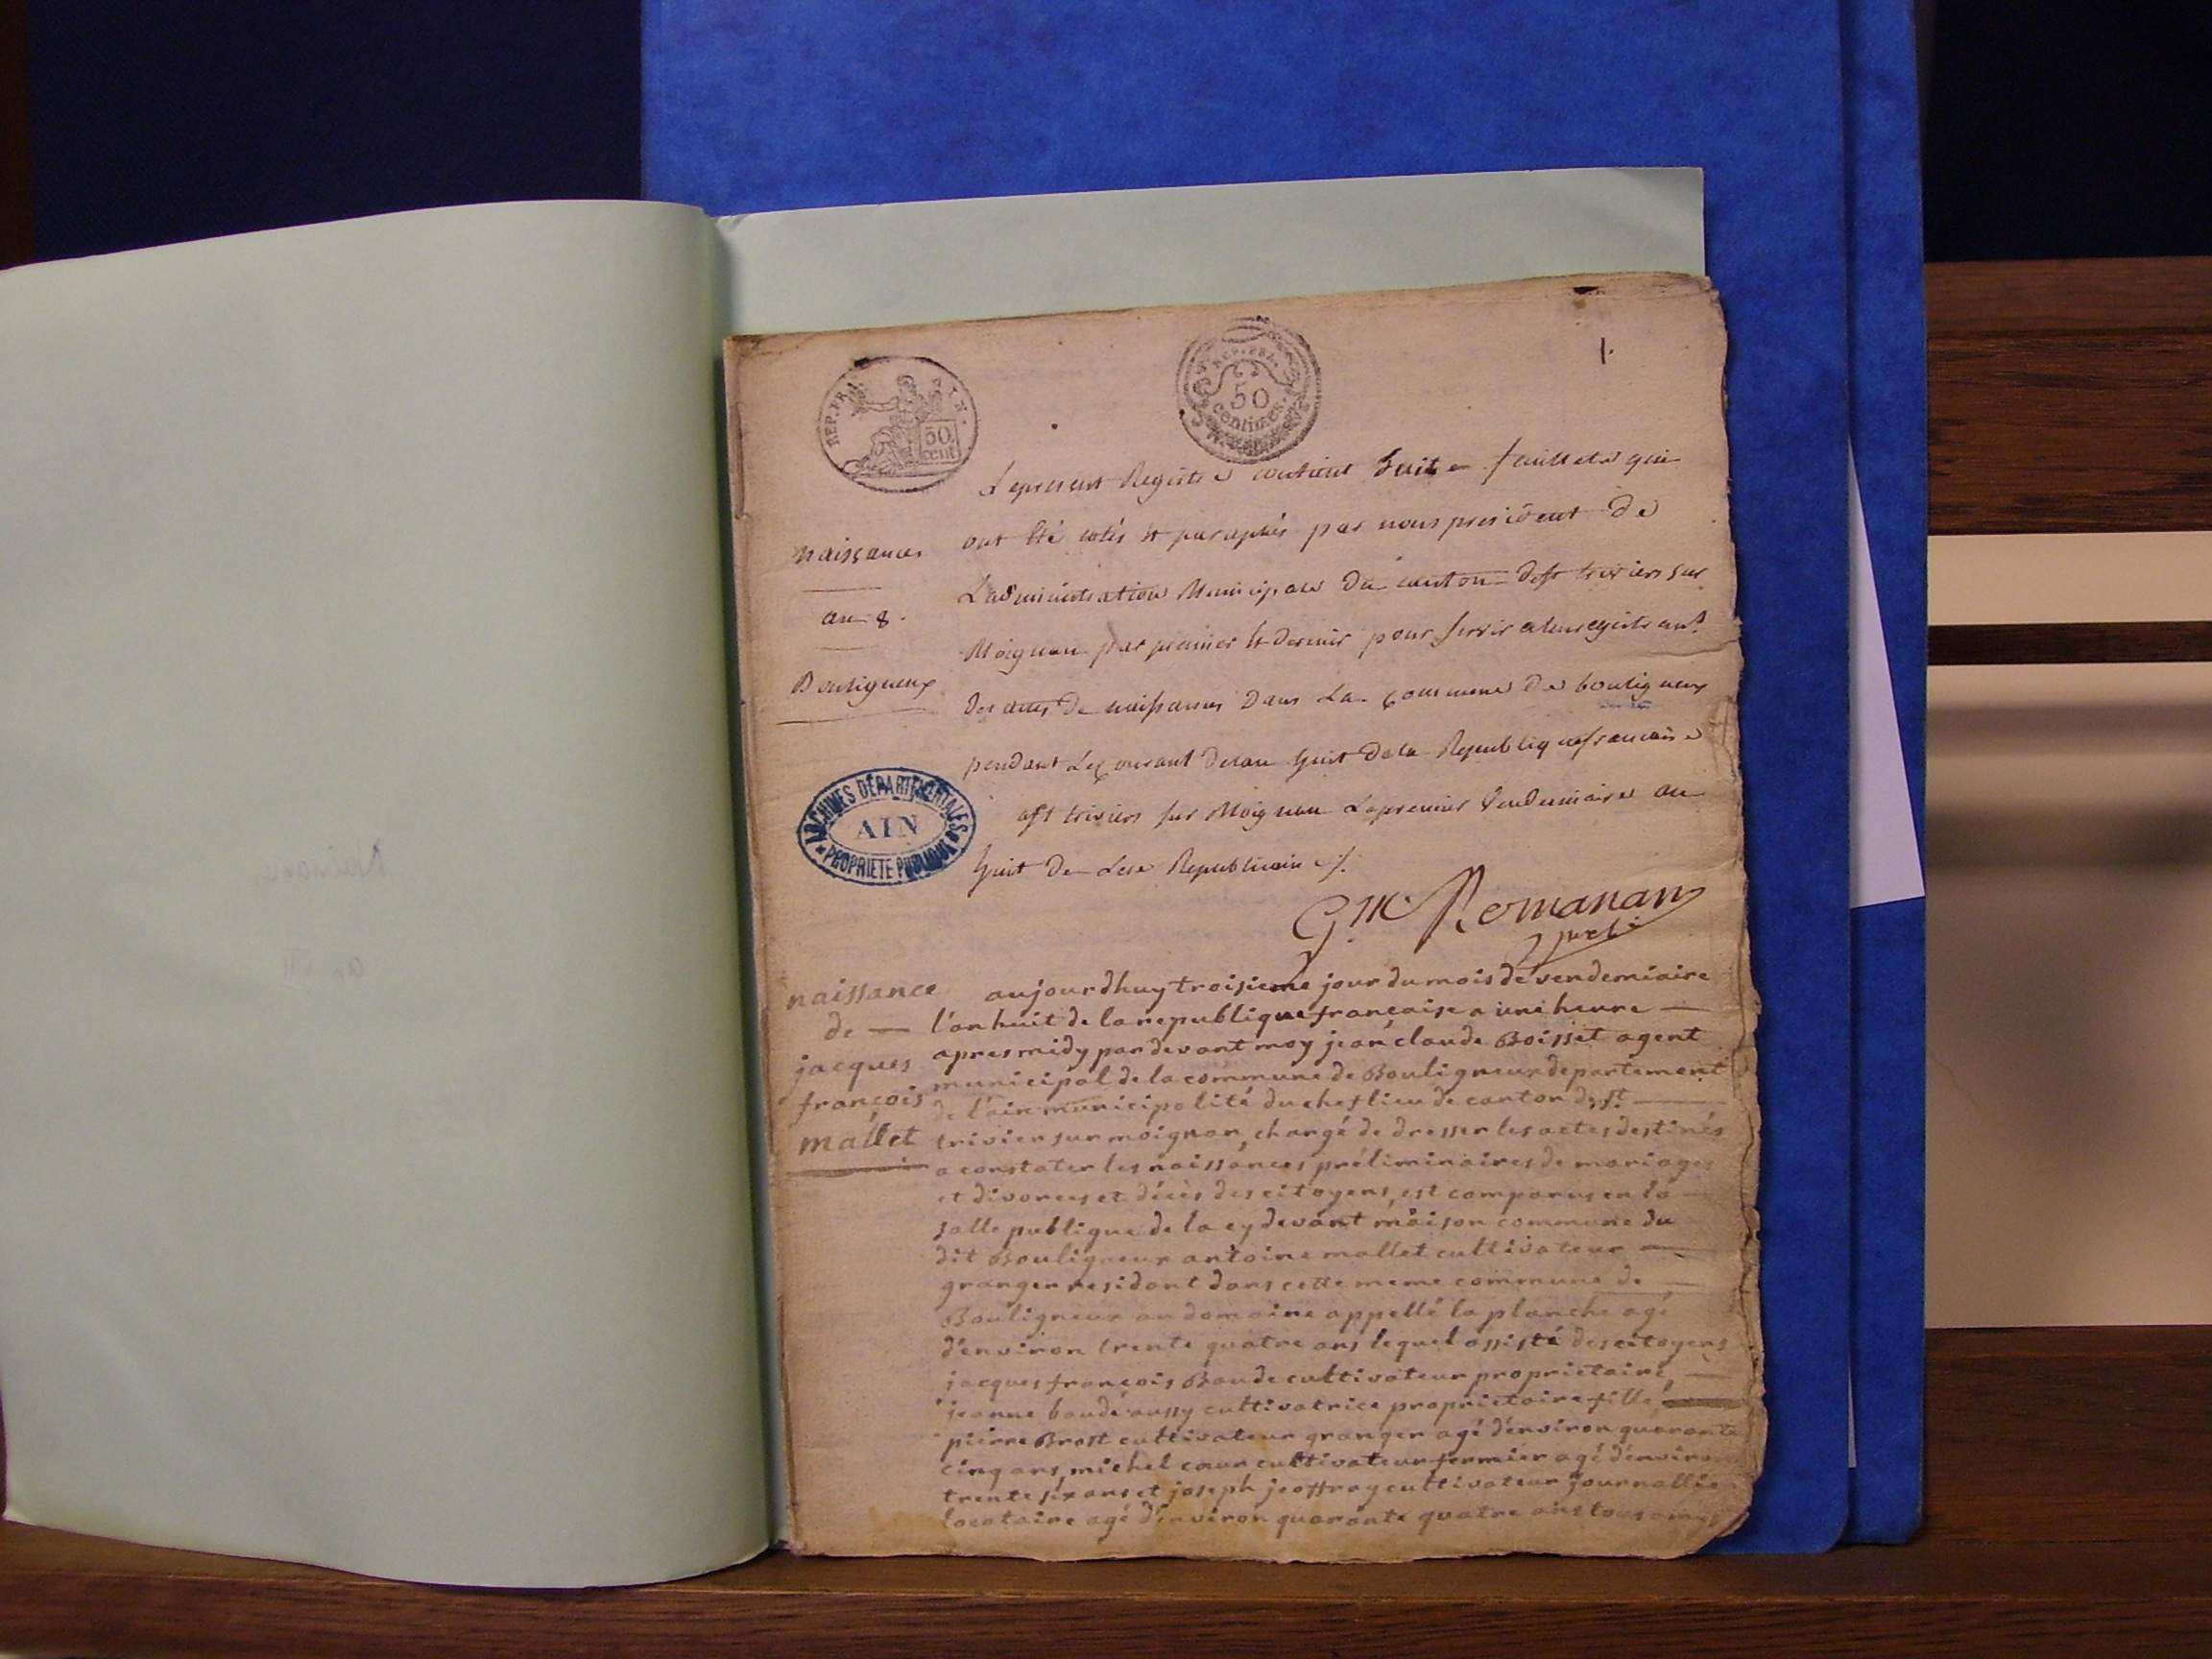 1.
REP. FRA
50
centimes.
REP. FR
50
cent
Le present Registre contient huit feuillets qui
ont été cotés et paraphés par nous president de
L'administration Municipale du canton de st triviers sur
Moignan par premier et dernier pour servir a l'enregistremt
des actes de naissances dans La commune de bouligneux
pendant Le courant de l'an huit de la Republique francaise
a st triviers sur Moignan Le premier Vendemiaire an
huit de L'ere Republicaine ./.
naissances
an 8.
Bouligneux
ARCHIVES DÉPARTEMENTALES
AIN
PROPRIÉTÉ PUBLIQUE
Gme Romanan
naissance
de
jacques
françois
mallet
aujourdhuy troisieme jour du mois de vendemiaire
l'an huit de la republique française a une heure
apres midy par devant moy jean claude Boisset agent
municipal de la commune de Bouligneux departement
de l'ain municipalité du chef lieu de canton de st
trivier sur moignan, chargé de dresser les actes destinés
a constater les naissances préliminaires de mariages
et divorces et décès des citoyens, est comparus en la
salle publique de la cy devant maison commune du
dit Bouligneux antoine mallet cultivateur
granger residant dans cette meme commune de
Bouligneux au domaine appellé la planche agé
d'environ trente quatre ans lequel assisté des citoyens
jacques françois Baude cultivateur proprietaire,
jeanne baude aussy cultivatrice proprietaire fille,
pierre Brost cultivateur granger agé d'environ quarante
cinq ans, michel cœur cultivateur fermier agé d'environ
trente six ans et joseph jeoffray cultivateur journallie
locataire agé d'environ quarante quatre ans tous amis